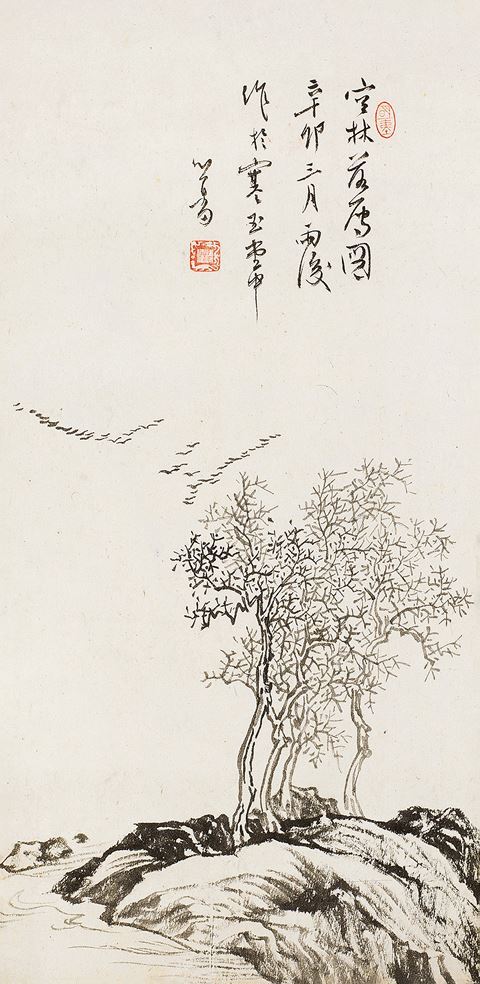 空林落雁圖
辛卯三月雨後
作於寒玉堂中
心畬